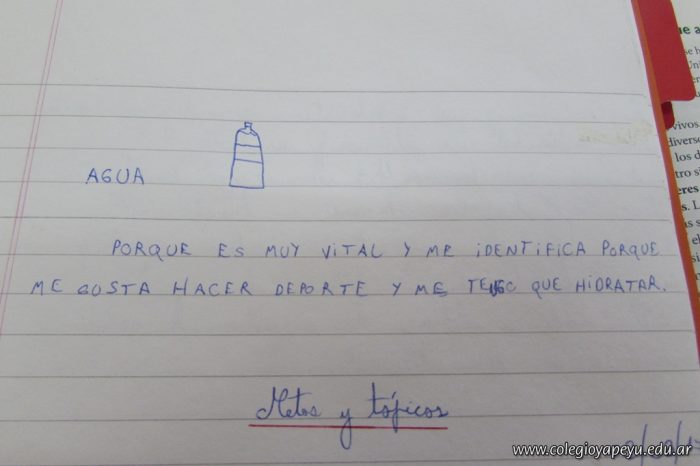 AGUA
PORQUE ES MUY VITAL Y ME IDENTIFICA PORQUE
ME GUSTA HACER DEPORTE Y ME TENGO QUE HIDRATAR.
Metas y tópicos
www.colegioyapeyu.edu.ar
vivos
los d